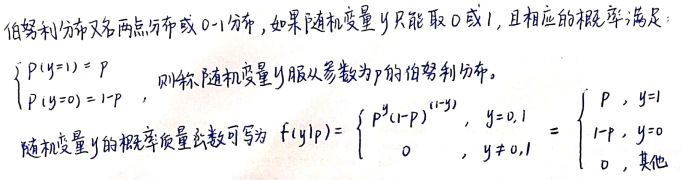 伯努利分布又名两点分布或0-1分布,如果随机变量y只能取0或1,且相应的概率满足:
{ P(y=1) = p
{ P(y=0) = 1-p , 则称随机变量y服从参数为p的伯努利分布。
随机变量y的概率质量函数可写为 f(y|p) = { p^y(1-p)^(1-y) , y=0,1 = { p , y=1
0 , y≠0,1 1-p , y=0
0 , 其他